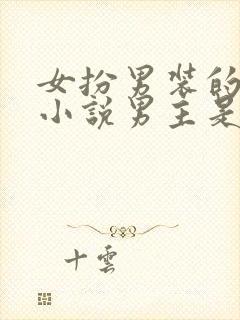 女扮男装的
小說男主是
十雲